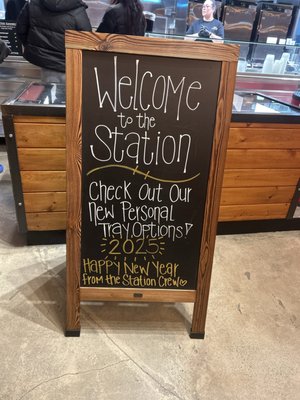 Welcome
to the
Station
Check Out Our
New Personal
Tray Options!
2025
Happy New Year
from the Station Crew♡